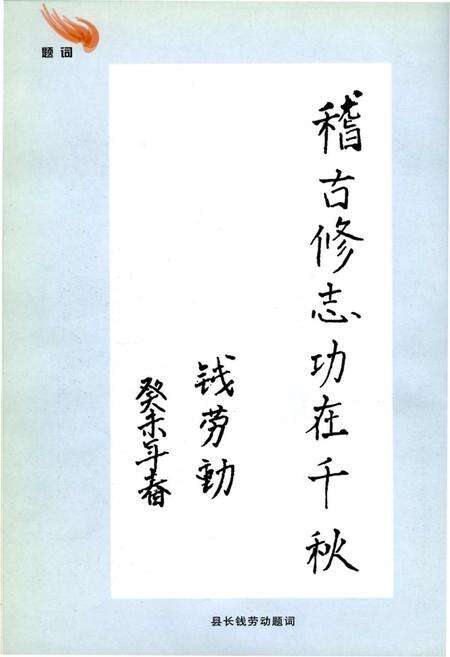 题词
稽古修志功在千秋
钱劳動
癸未年春
县长钱劳动题词